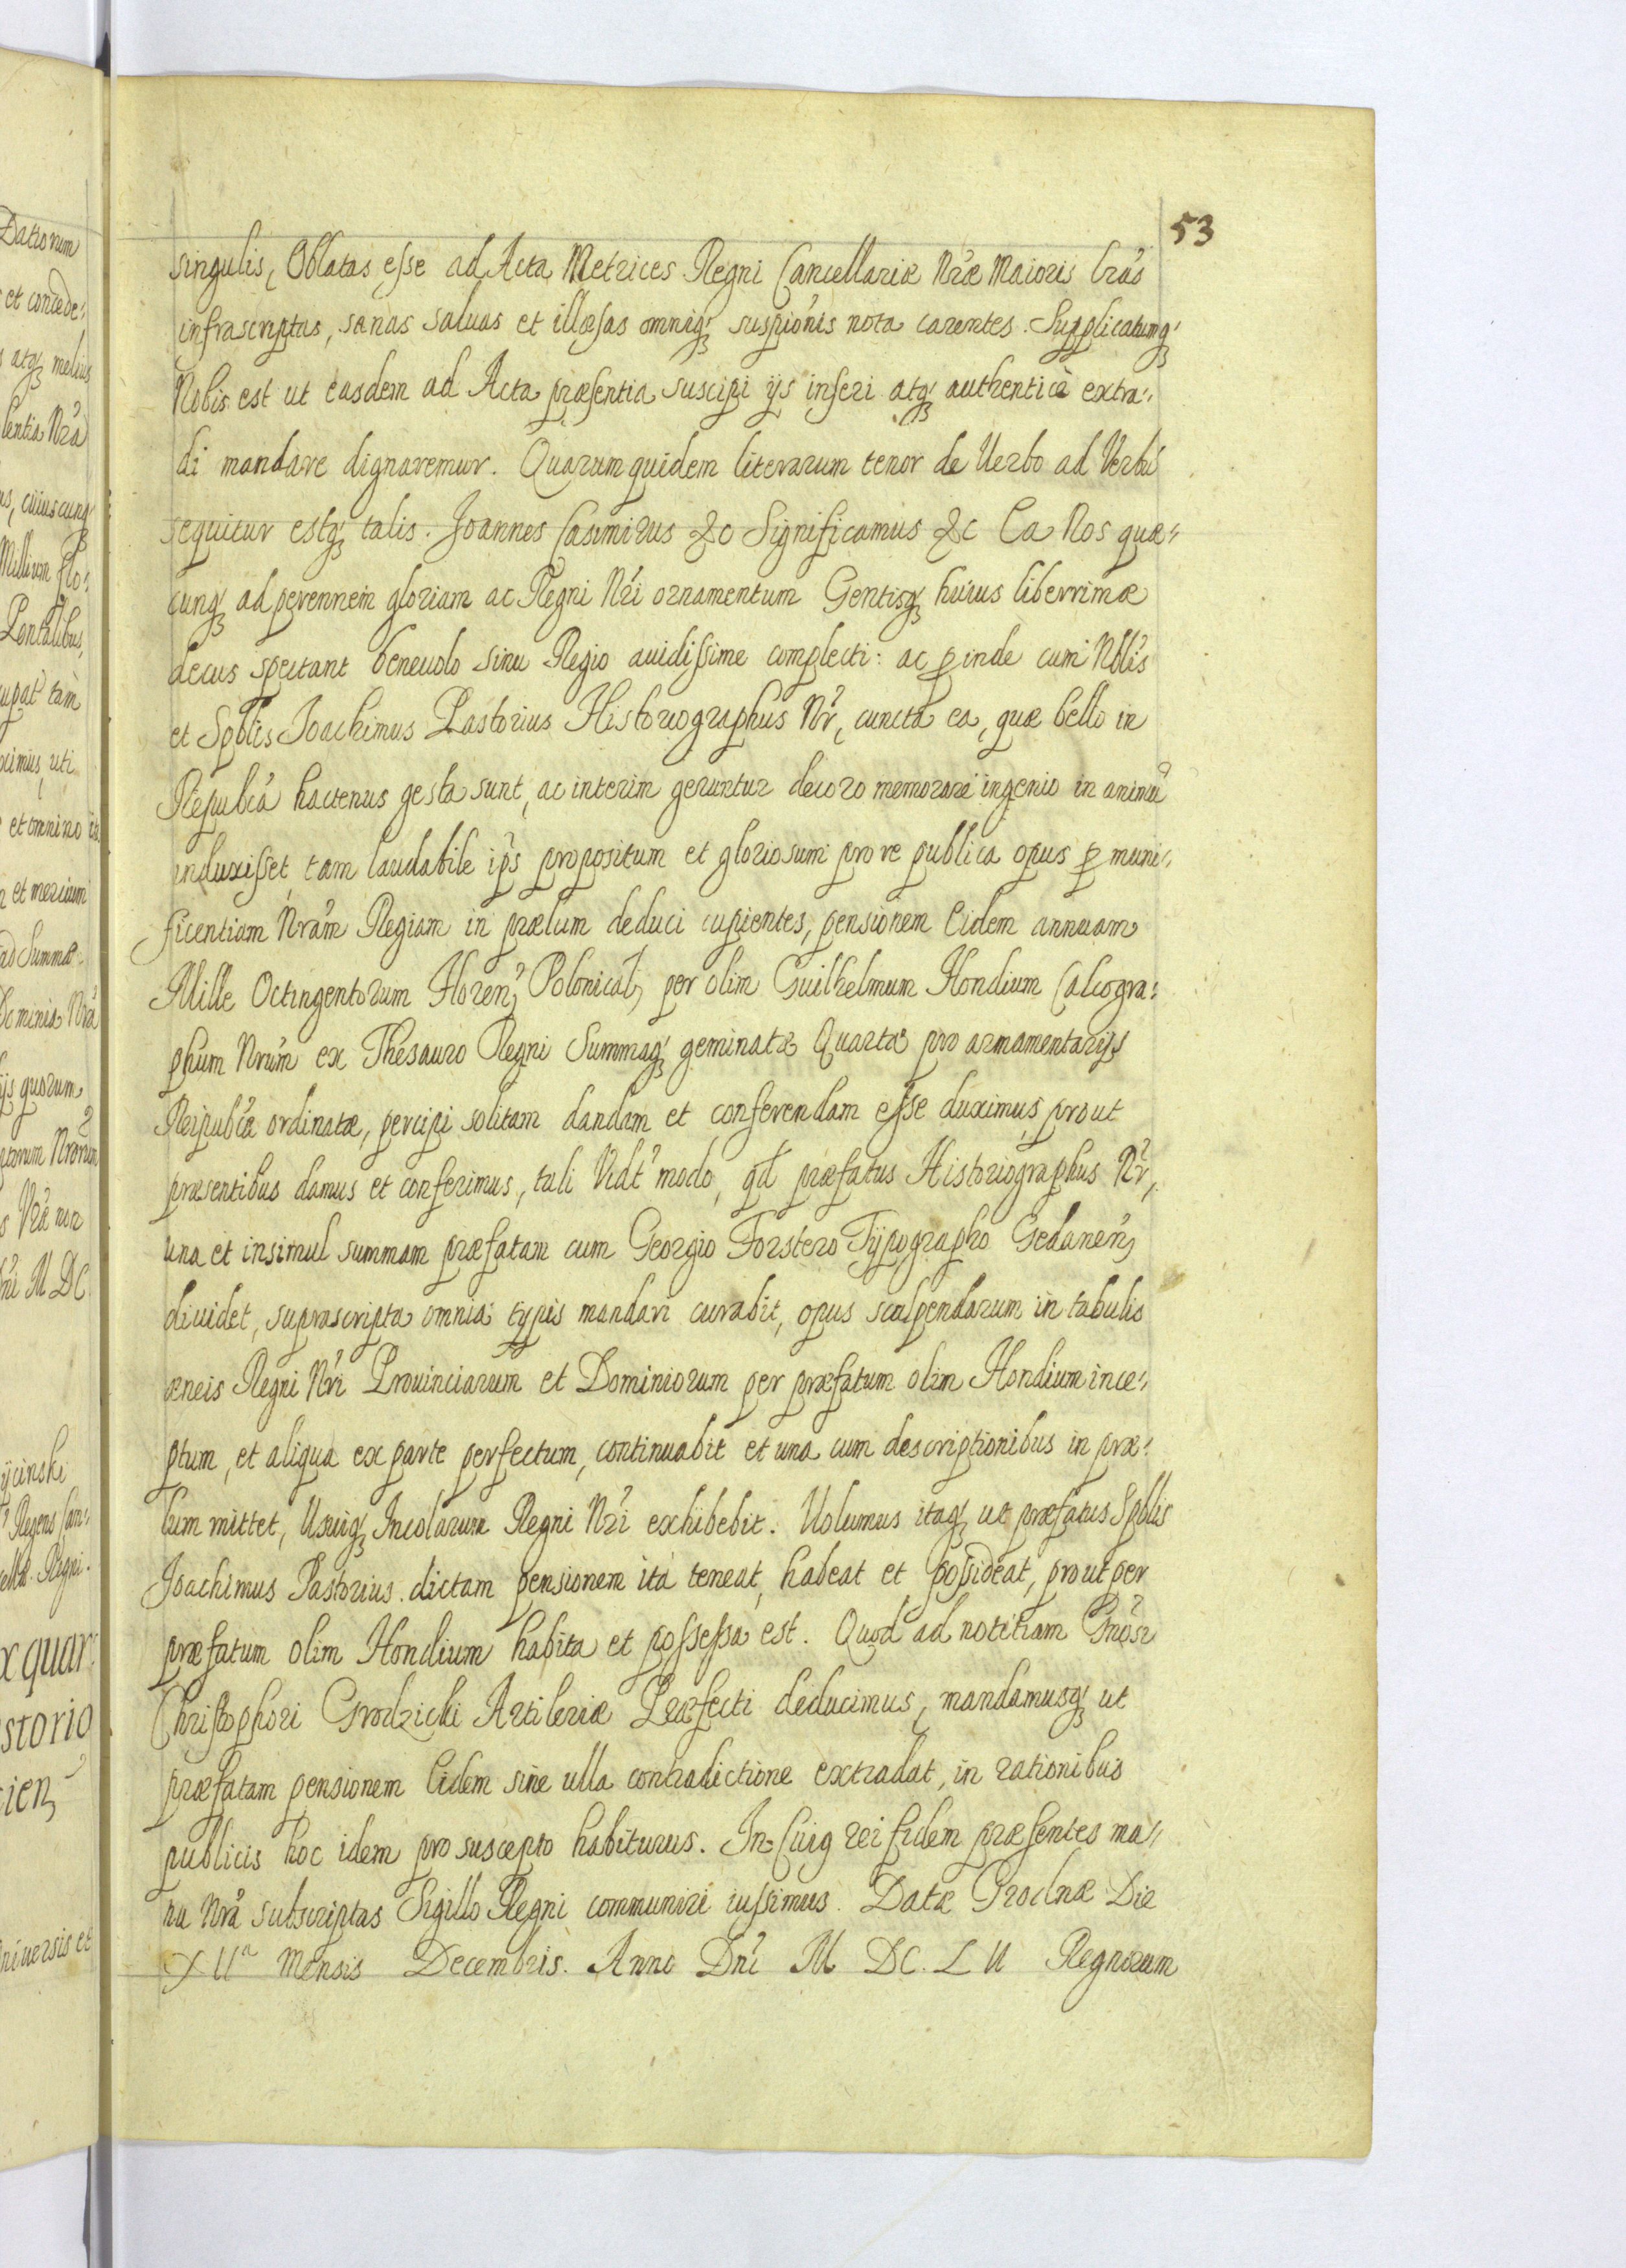 53
singulis, Oblatas esse ad Acta Metrices Regni Cancellariæ Nræ Maioris Lrás
infrascriptas, sanas saluas et illæsas omniq; suspiónis nota carentes. Supplicatumq;
Nobis est ut easdem ad Acta præsentia suscipi ijs inseri atq; authenticè extra-
di mandare dignaremur. Quarum quidem literarum tenor de Verbo ad Verbũ
sequitur estq; talis. Joannes Casimirus &c Significamus &c Ea Nos quæ-
cunq; ad perennem gloriam ac Regni Nri ornamentum Gentisq; huius liberrimæ
decus spectant beneuolo sinu Regio auidissime complecti: ac ꝑinde cum Nblis
et Spblis Joachimus Pastorius Historiographus Nr, cuncta ea, quæ bello in
Republcá hactenus gesta sunt, ac interim geruntur decoro memorare ingenio in animũ
induxisset tam laudabile ips propositum et gloriosum pro re publica opus ꝑ muni-
ficentiam Nram Regiam in prælum deduci cupientes, pensionem Eidem annuam
Mille Octingentorum Floren, Polonical, per olim Guilhelmum Hondium Calcogra-
phum Nrum ex Thesauro Regni Summaq; geminatæ Quartæ pro armamentarijs
Reipublcæ ordinatæ, percipi solitam dandam et conferendam esse duximus, prout
præsentibus damus et conferimus, tali Vidt modo, qd præfatus Historiographus Nr,
una et insimul summam præfatam cum Georgio Forstero Typographo Gedanen,
diuidet, suprascripta omnia typis mandari curabit, opus scalpendarum in tabulis
æneis Regni Nri Prouinciarum et Dominiorum per præfatum olim Hondium ince-
ptum, et aliqua ex parte perfectum, continuabit et una cum descriptionibus in præ-
lum mittet, Usuiq; Incolarum Regni Nri exhibebit. Volumus itaq; ut præfatus Spblis
Joachimus Pastorius dictam pensionem ita teneat, habeat et possideat, prout per
præfatum olim Hondium habita et possessa est. Quod ad notitiam Gnosi
Christophori Grodzicki Artileriæ Præfecti deducimus, mandamusq; ut
præfatam pensionem Eidem sine ulla contradictione extradat, in rationibus
publicis hoc idem pro suscepto habiturus. In Cuiq rei fidem præsentes ma-
nu Nra subscriptas Sigillo Regni communiri iussimus. Datæ Grodnæ Die
XIIa Mensis Decembris. Anno Dni M DC. L II Regnorum